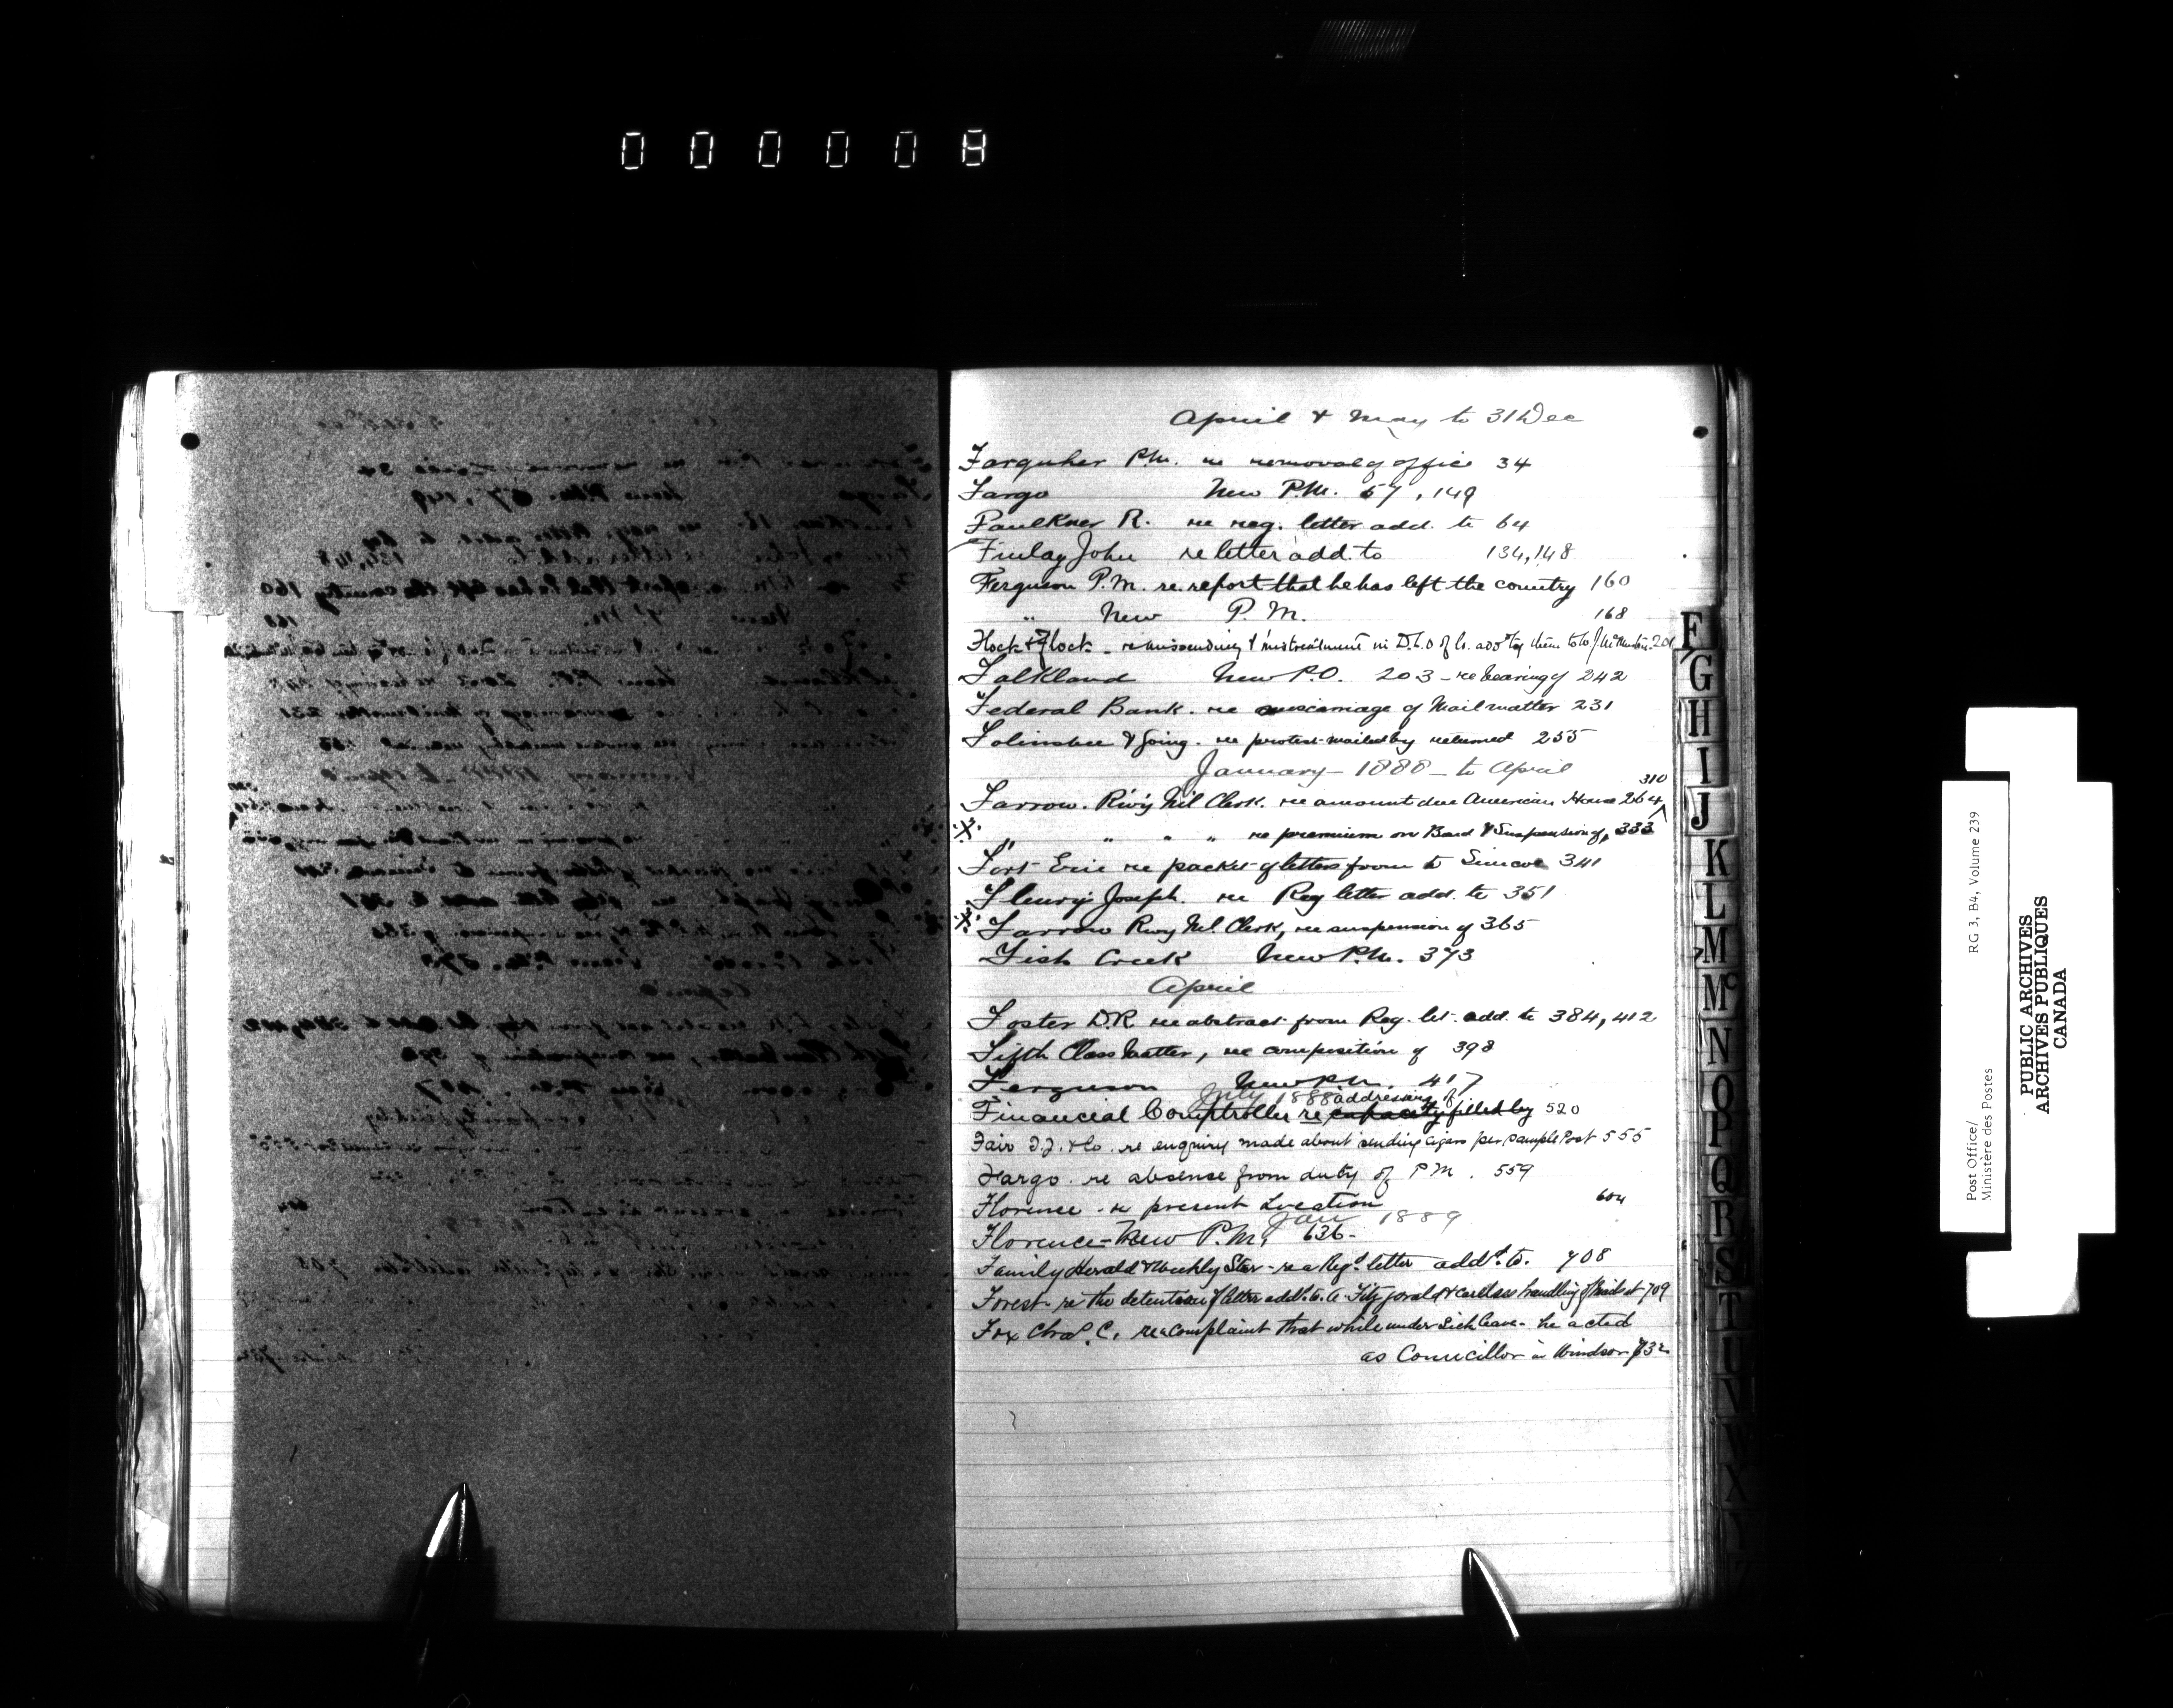 000008
April & May to 31 Dec
Farquher P.M. re removal of office 34
Fargo New P.M. 57, 149
Faulkner R. re reg. letter add. to 64
Finlay John re letter add. to 134, 148
Ferguson P.M. re. report that he has left the country 160
" New P.M. 168
Flock & Flock - re missending & mistreatment in D.L.O of
Falkland New P.O. 203 - re hearing of 242
Federal Bank. re miscarriage of Mail matter 231
Folinsbee & Going. re protest mailed by returned 255
January 1888 - to April
310
Farrow. R'w'y M'l Clerk. re amount due American House 264
" " " " re premium on Bond & Suspension of, 333
Fort Erie re packet of letters from to Simcoe 341
Fleury Joseph. re Reg letter add. to 351
Farrow Rwy Ml. Clerk, re suspension of 365
Fish Creek New P.M. 373
April
Foster D.R. re abstract from Reg. let. add. to 384, 412
Fifth Class Matter, re composition of 398
Ferguson New P.M. 417
July 1888 addressing of
Financial Comptroller re capacity filled by 520
Fair T.J. & Co. re enquiry made about sending cigars per Sample Post 555
Fargo. re absence from duty of P M. 559
Florence - re present Location 604
Jan 1889
Florence - New P.M. 636.
Family Herald & Weekly Star - re a Regd. letter addd. to. 708
Forest - re the detention of letter addd. to. A. Fitzgerald & careless handling of Mails at 709
Fox Chas. C. re a complaint that while under sick leave - he acted
as Councillor in Windsor 732
F
G
H
I
J
K
L
M
Mc
N
O
P
Q
R
S
T
U
V
W
X
Y
Z
Post Office/ RG 3, B4, Volume 239
Ministère des Postes
PUBLIC ARCHIVES
ARCHIVES PUBLIQUES
CANADA